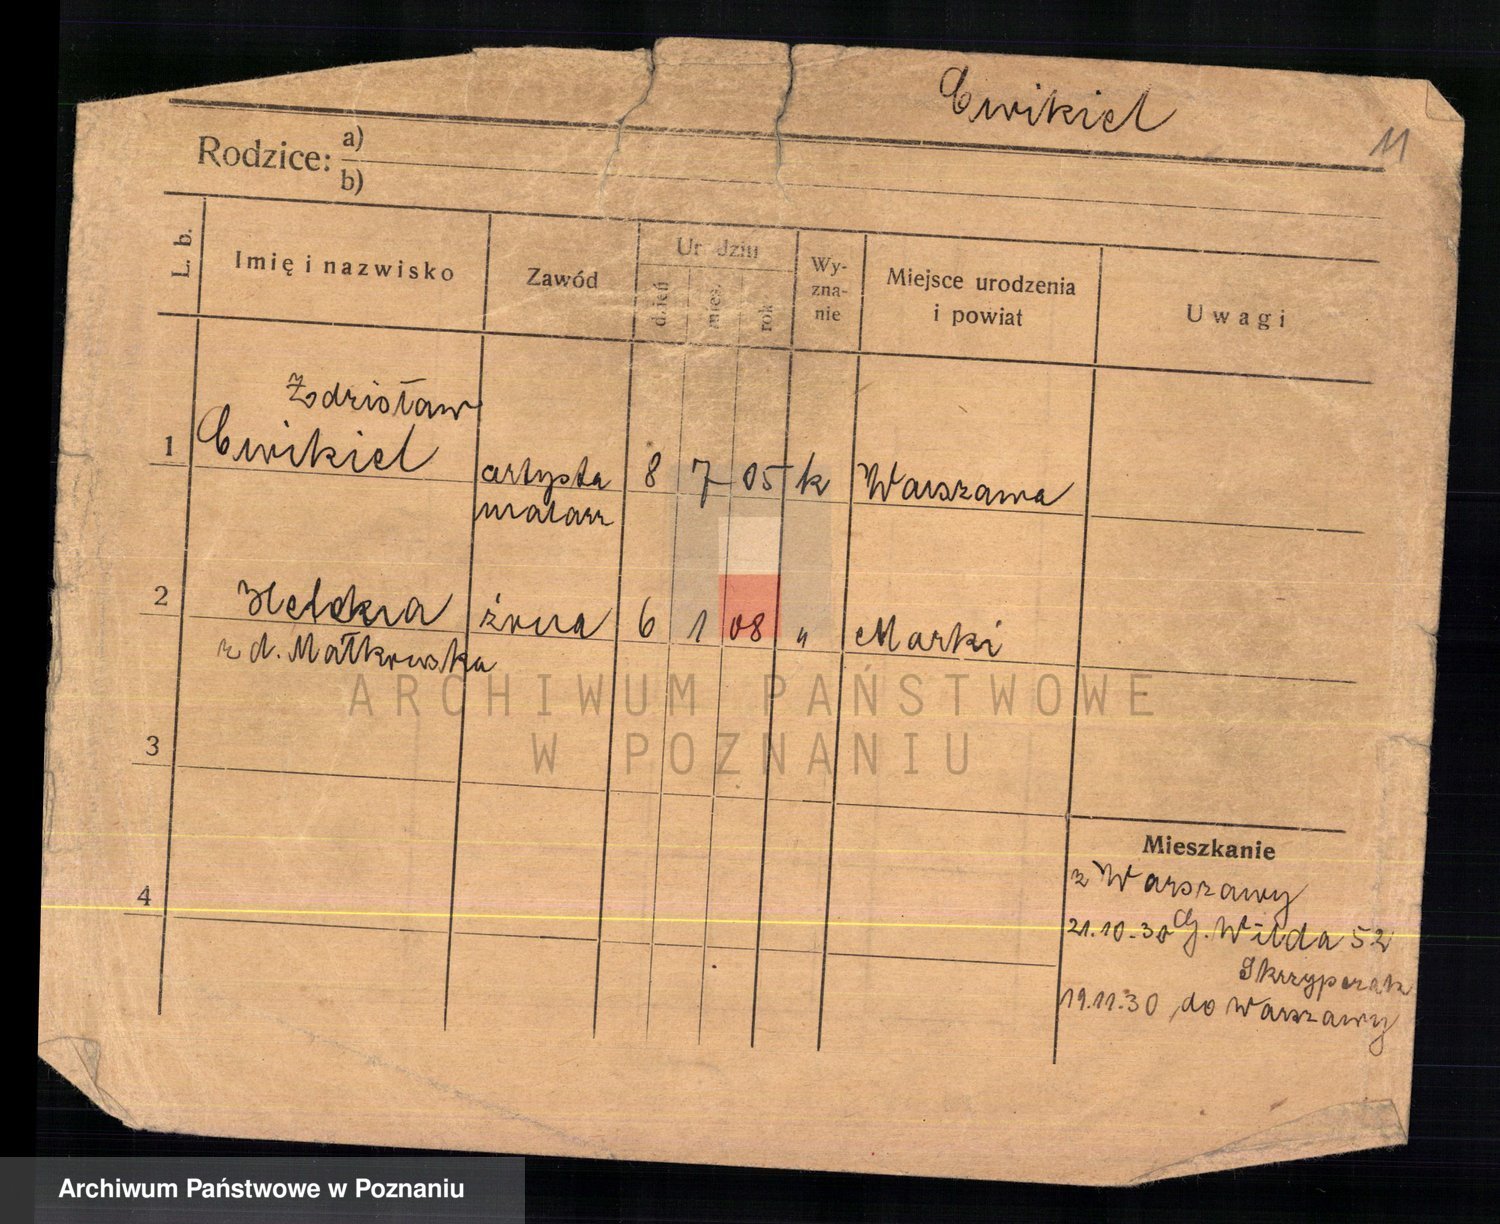 Cwikiel
11
Rodzice: a)
b)
L. b.
Imię i nazwisko
Zawód
Urodziu
dzień
mies.
rok
Wy-
zna-
nie
Miejsce urodzenia
i powiat
Uwagi
Zdzisław
1 Cwikiel artysta 8 7 05 k Warszawa
malarz
2 Helena żona 6 1 08 " Marki
z d. Małkowska
ARCHIWUM PAŃSTWOWE
W POZNANIU
3
Mieszkanie
4
z Warszawy
21.10.30 G. Wilda 52
Skrzypczak
19.11.30 do Warszawy
Archiwum Państwowe w Poznaniu